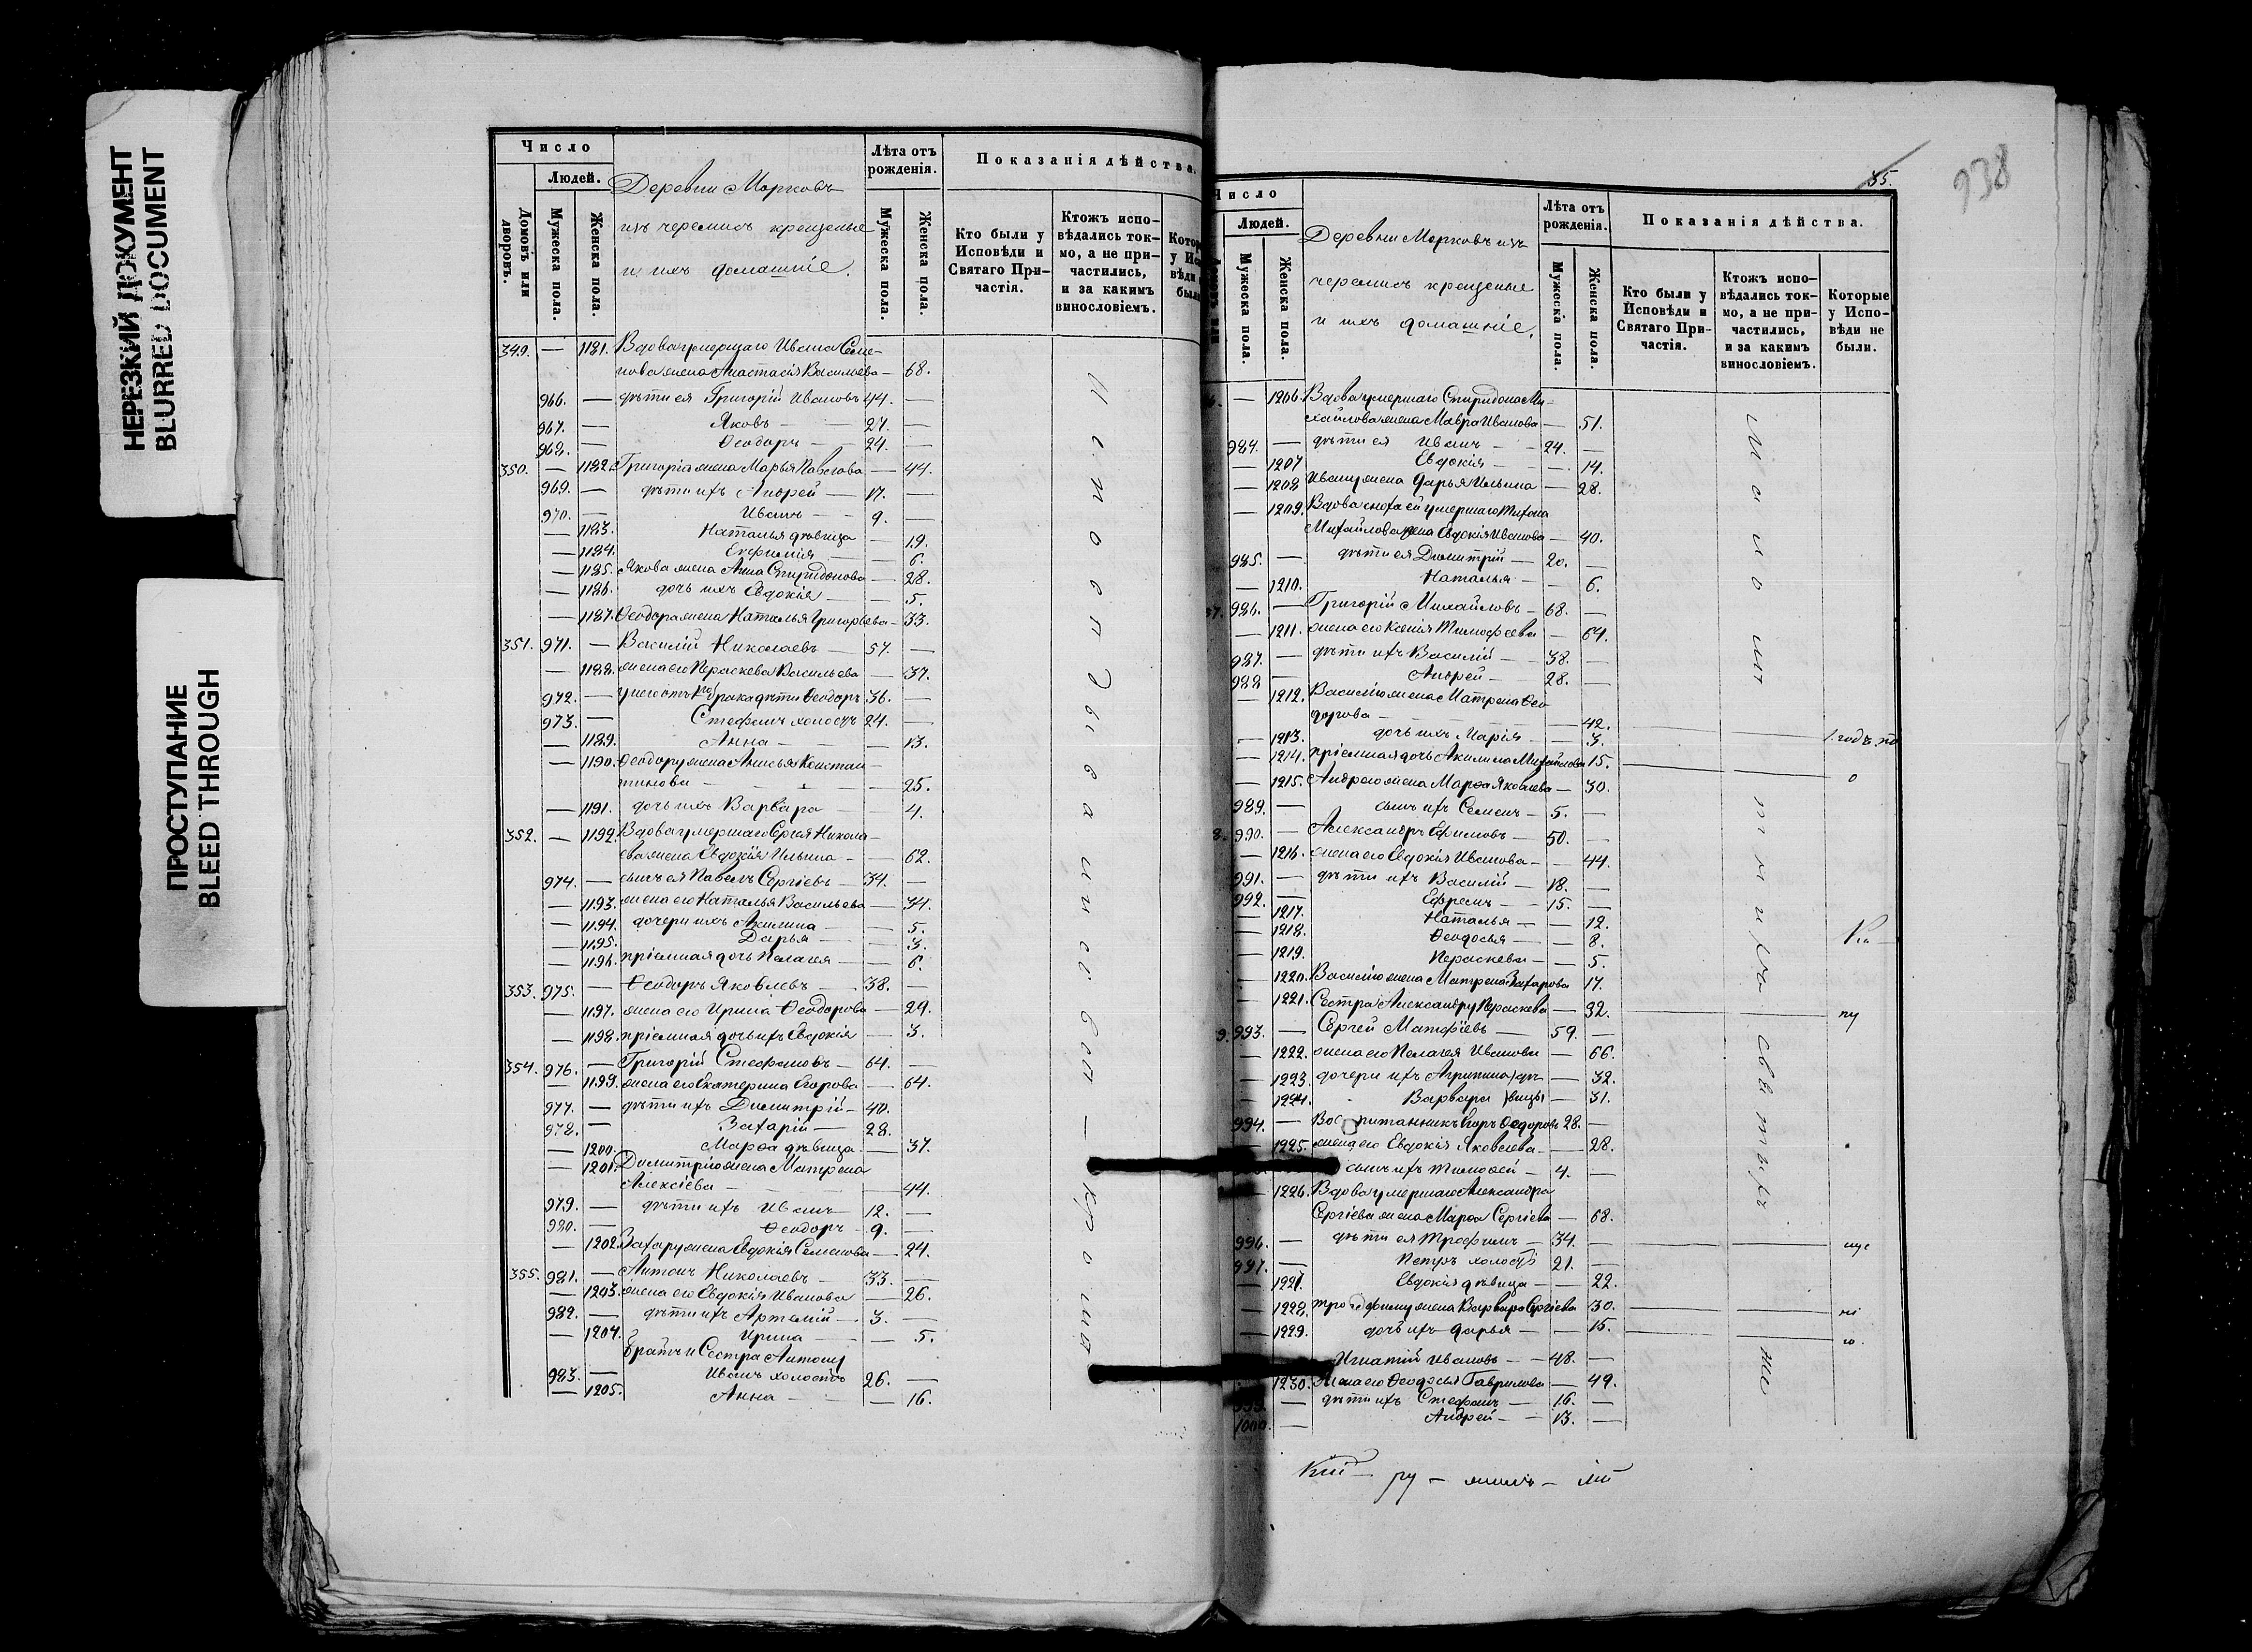 НЕРЕЗКИЙ ДОКУМЕНТ
BLURRED DOCUMENT
ПРОСТУПАНИЕ
BLEED THROUGH
Число
Людей.
Домовъ или дворовъ.
Мужеска пола.
Женска пола.
Деревни Морковъ
изъ черемисъ крещеные
и ихъ домашніе.
Лѣта отъ рожденія.
Мужеска пола.
Женска пола.
Показанія дѣйства.
Кто были у Исповѣди и Святаго Причастія.
Ктожъ исповѣдались токмо, а не причастились, и за какимъ винословіемъ.
349. — 1181. Вдова умершаго Ивана Семе-
нова жена Анастасія Васильева — 68.
966. — дѣти ея Григорій Ивановъ 44. —
967. — Яковъ — 27. —
968. — Ѳеодоръ — 24. —
350. — 1182. Григорія жена Марья Павлова — 44.
969. — дѣти ихъ Андрей — 17. —
970. — Иванъ — 9. —
— 1183. Наталья дѣвица — 19.
— 1184. Евфимія — 6.
— 1185. Якова жена Анна Спиридонова — 28.
— 1186. дочь ихъ Евдокія — 5.
— 1187. Ѳеодора жена Наталья Григорьева — 33.
351. 971. — Василій Николаевъ — 57. —
— 1188. жена его Параскева Васильева — 37.
972. — у него отъ 1го брака дѣти Ѳеодоръ 36. —
973. — Стефанъ холостъ 24. —
— 1189. Анна — 13.
— 1190. Ѳеодору жена Анисья Констан-
тинова — 25.
— 1191. дочь ихъ Варвара — 4.
352. — 1192. Вдова умершаго Сергея Никола-
ева жена Евдокія Ильина — 62.
974. — сынъ ея Павелъ Сергіевъ — 34. —
— 1193. жена его Наталья Васильева — 34.
— 1194. дочери ихъ Акилина — 5.
— 1195. Дарья — 3.
— 1196. пріемная дочь Пелагея — 6.
353. 975. — Ѳеодоръ Яковлевъ — 38. —
— 1197. жена его Ирина Ѳеодорова — 29.
— 1198. пріемная дочь ихъ Евдокія — 3.
354. 976. — Григорій Стефановъ — 64. —
— 1199. жена его Екатерина Егорова — 64.
977. — дѣти ихъ Димитрій — 40.
978. — Захарій — 28.
— 1200. Марѳа дѣвица — 37.
— 1201. Димитрію жена Матрена
Алексіева — 44.
979. — дѣти ихъ Иванъ 12. —
980. — Ѳеодоръ — 9. —
— 1202. Захару жена Евдокія Семенова — 24.
355. 981. — Антонъ Николаевъ — 33. —
— 1203. жена его Евдокія Иванова — 26.
982. — дѣти ихъ Артемій — 3. —
— 1204. Ирина — 5.
Братъ и Сестра Антону
983. — Иванъ холостъ 26. —
— 1205. Анна — 16.
35.
938
Число
Людей.
Мужеска пола.
Женска пола.
Деревни Морковъ изъ
черемисъ крещеные
и ихъ домашніе.
Лѣта отъ рожденія.
Мужеска пола.
Женска пола.
Показанія дѣйства.
Кто были у Исповѣди и Святаго Причастія.
Ктожъ исповѣдались токмо, а не причастились, и за какимъ винословіемъ.
Которые у Исповѣди не были.
— 1206. Вдова умершаго Спиридона Ми-
хайлова жена Мавра Иванова — 51.
984. — дѣти ея Иванъ — 24. —
— 1207 Евдокія — 14.
— 1208 Ивану жена Дарья Ильина — 28.
— 1209. Вдова сноха ей умершаго Тихона
Михайлова жена Евдокія Иванова — 40.
985. — дѣти ея Димитрій — 20. —
— 1210. Наталья — 6.
986. — Григорій Михайловъ — 68. —
— 1211. жена его Ксенія Тимофеева — 64.
987. — дѣти ихъ Василій — 38. —
988 — Андрей — 28. —
— 1212. Василію жена Матрена Ѳео-
дорова — 42.
— 1213. дочь ихъ Марія — 3.
— 1214. пріемная дочь Акилина Михайлова 15.
— 1215. Андрею жена Марѳа Яковлева — 30.
989. — сынъ ихъ Семенъ — 5. —
990. — Александръ Ефимовъ — 50. —
— 1216. жена его Евдокія Иванова — 44.
991. — дѣти ихъ Василій — 18. —
992. — Ефремъ — 15. —
— 1217. Наталья — 12.
— 1218. Ѳеодосья — 8.
— 1219. Параскева — 5.
— 1220. Василію жена Матрена Захарова 17.
— 1221. Сестра Александру Параскева — 32.
993. — Сергей Матфіевъ — 59. —
— 1222. жена его Пелагея Иванова — 66.
— 1223. дочери ихъ Агрипина дѣ- — 32.
— 1224. Варвара вицы — 31.
994. — Воспитанникъ Егоръ Ѳедоровъ 28. —
— 1225. жена его Евдокія Яковлева — 28.
сынъ ихъ Тимоѳей — 4. —
— 1226. Вдова умершаго Александра
Сергіева жена Марѳа Сергіева — 68.
996. — дѣти ея Трофимъ — 34. —
997. — Петръ холостъ 21. —
— 1227. Евдокія дѣвица — 22.
— 1228. Трофиму жена Варвара Сергіева 30.
— 1229. дочь ихъ Дарья — 15.
Игнатій Ивановъ — 48. —
1230. Жена его Ѳеодосья Гаврилова — 49.
999. — дѣти ихъ Стефанъ — 16. —
1000. — Андрей — 13. —